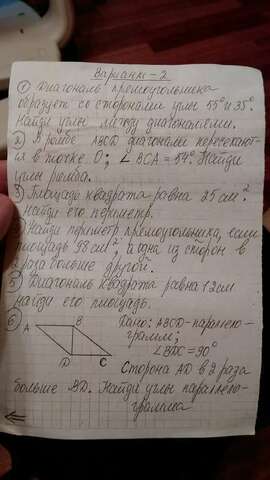 Вариант-2
① Диагональ прямоугольника
образует со сторонами углы 55° и 35°
Найди углы между диагоналями.
② В ромбе ABCD диагонали пересекают-
ся в точке O; ∠BCA = 54° Найди
углы ромба.
③ Площадь квадрата равна 25 см²
найди его периметр.
Найди периметр прямоугольника, если
площадь 98 см², а одна из сторон в
2 раза больше другой.
⑤ Диагональ квадрата равна 12 см
найди его площадь.
⑥
A B
D C
Дано: ABCD-паралело-
грамм;
∠BDC = 90°
Сторона AD в 2 раза
больше BD. Найди углы паралело-
грамма